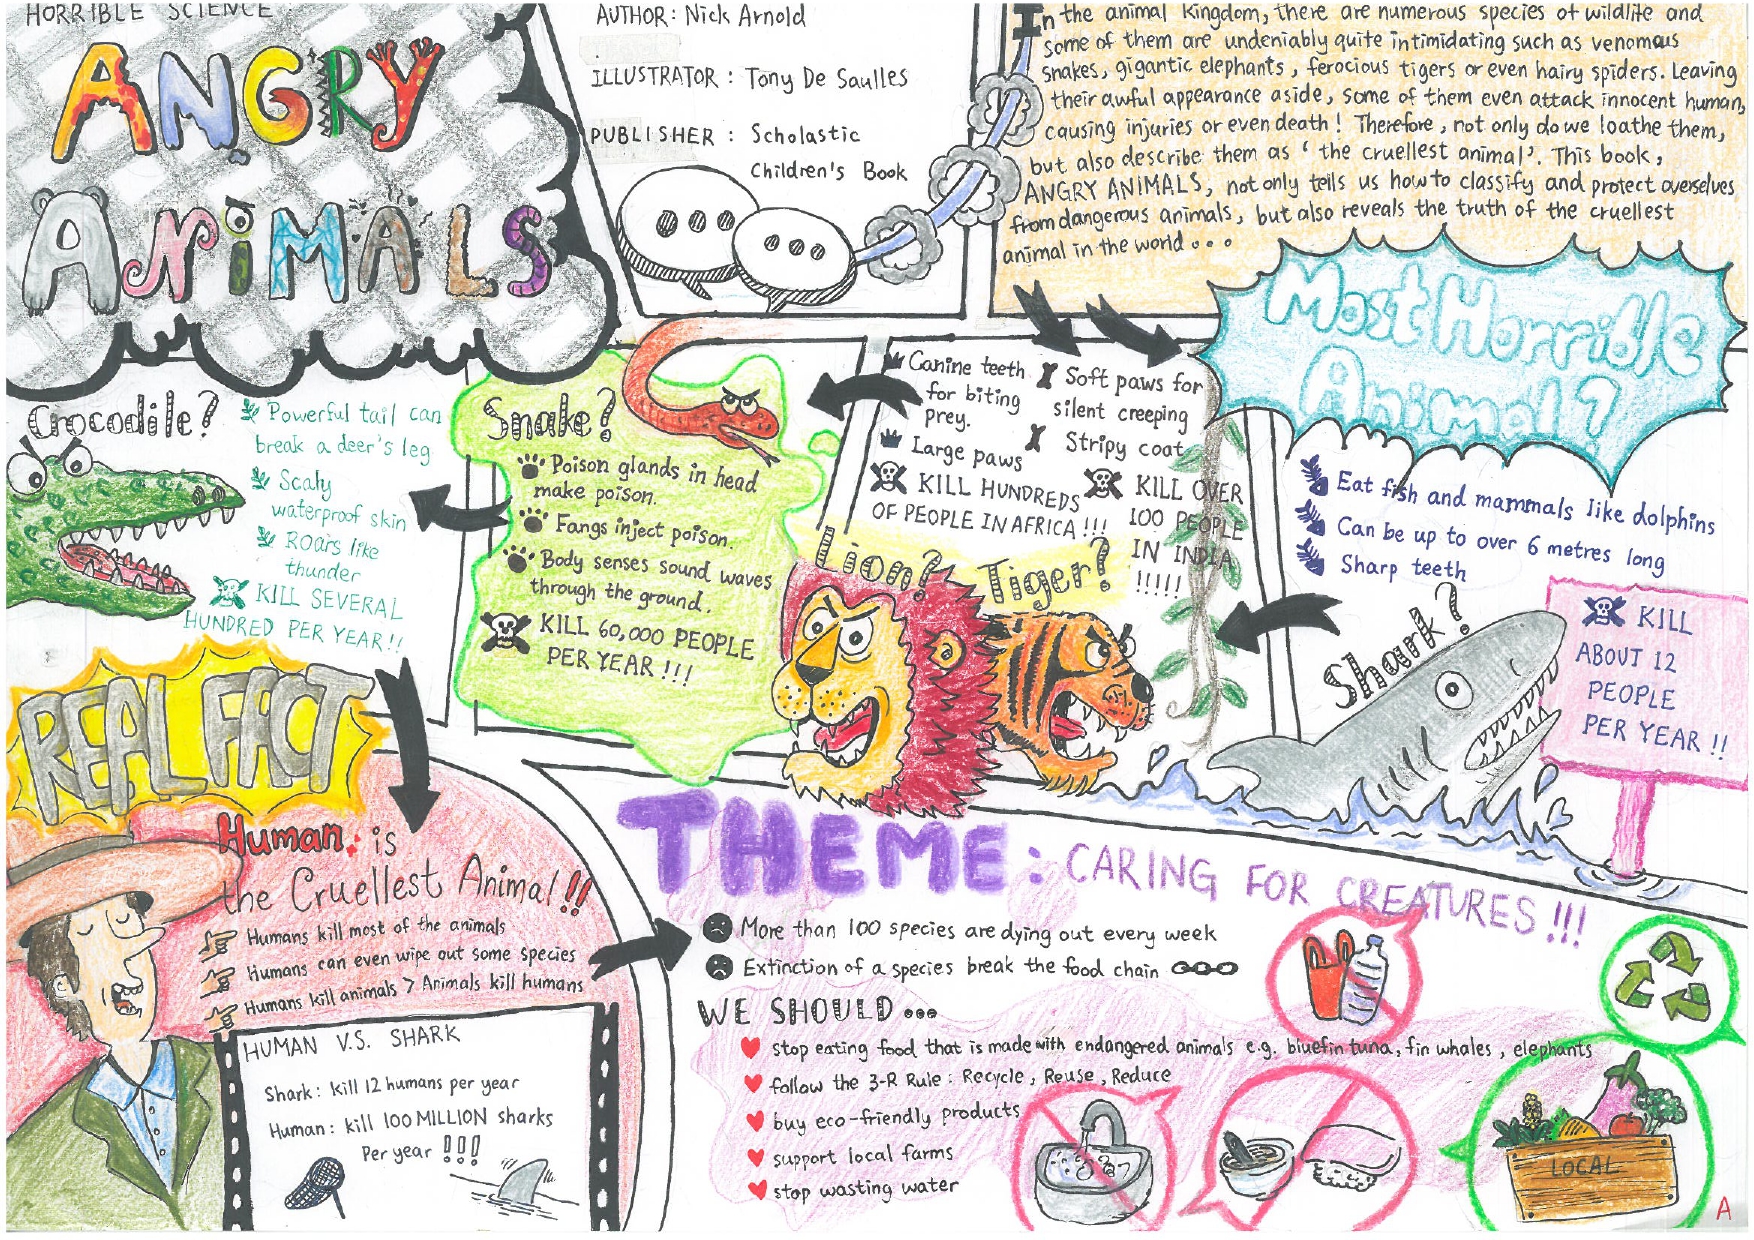 HORRIBLE SCIENCE
ANGRY
ANiMALS
AUTHOR: Nick Arnold
ILLUSTRATOR : Tony De Saulles
PUBLISHER : Scholastic
Children's Book
In the animal kingdom, there are numerous species of wildlife and
some of them are undeniably quite intimidating such as venomous
snakes, gigantic elephants, ferocious tigers or even hairy spiders. Leaving
their awful appearance aside, some of them even attack innocent human,
causing injuries or even death! Therefore, not only do we loathe them,
but also describe them as 'the cruellest animal'. This book,
ANGRY ANIMALS, not only tells us how to classify and protect overselves
from dangerous animals, but also reveals the truth of the cruellest
animal in the world...
Most Horrible
Animal?
Eat fish and mammals like dolphins
Can be up to over 6 metres long
Sharp teeth
Shark?
KILL
ABOUT 12
PEOPLE
PER YEAR !!
Soft paws for
silent creeping
Stripy coat
KILL OVER
100 PEOPLE
IN INDIA
!!!!!
Tiger?
Canine teeth
for biting
prey.
Large paws
KILL HUNDREDS
OF PEOPLE IN AFRICA !!!
Lion?
Snake?
Poison glands in head
make poison.
Fangs inject poison.
Body senses sound waves
through the ground.
KILL 60,000 PEOPLE
PER YEAR !!!
Crocodile?
Powerful tail can
break a deer's leg
Scaly
waterproof skin
Roars like
thunder
KILL SEVERAL
HUNDRED PER YEAR!!
REAL FACT
Human is
the Cruellest Animal!!
Humans kill most of the animals
Humans can even wipe out some species
Humans kill animals > Animals kill humans
HUMAN V.S. SHARK
Shark: kill 12 humans per year
Human: kill 100 MILLION sharks
Per year !!!
THEME: CARING FOR CREATURES!!!
More than 100 species are dying out every week
Extinction of a species break the food chain
WE SHOULD...
stop eating food that is made with endangered animals e.g. bluefin tuna, fin whales, elephants
follow the 3-R Rule: Recycle, Reuse, Reduce
buy eco-friendly products
support local farms
stop wasting water
LOCAL
A